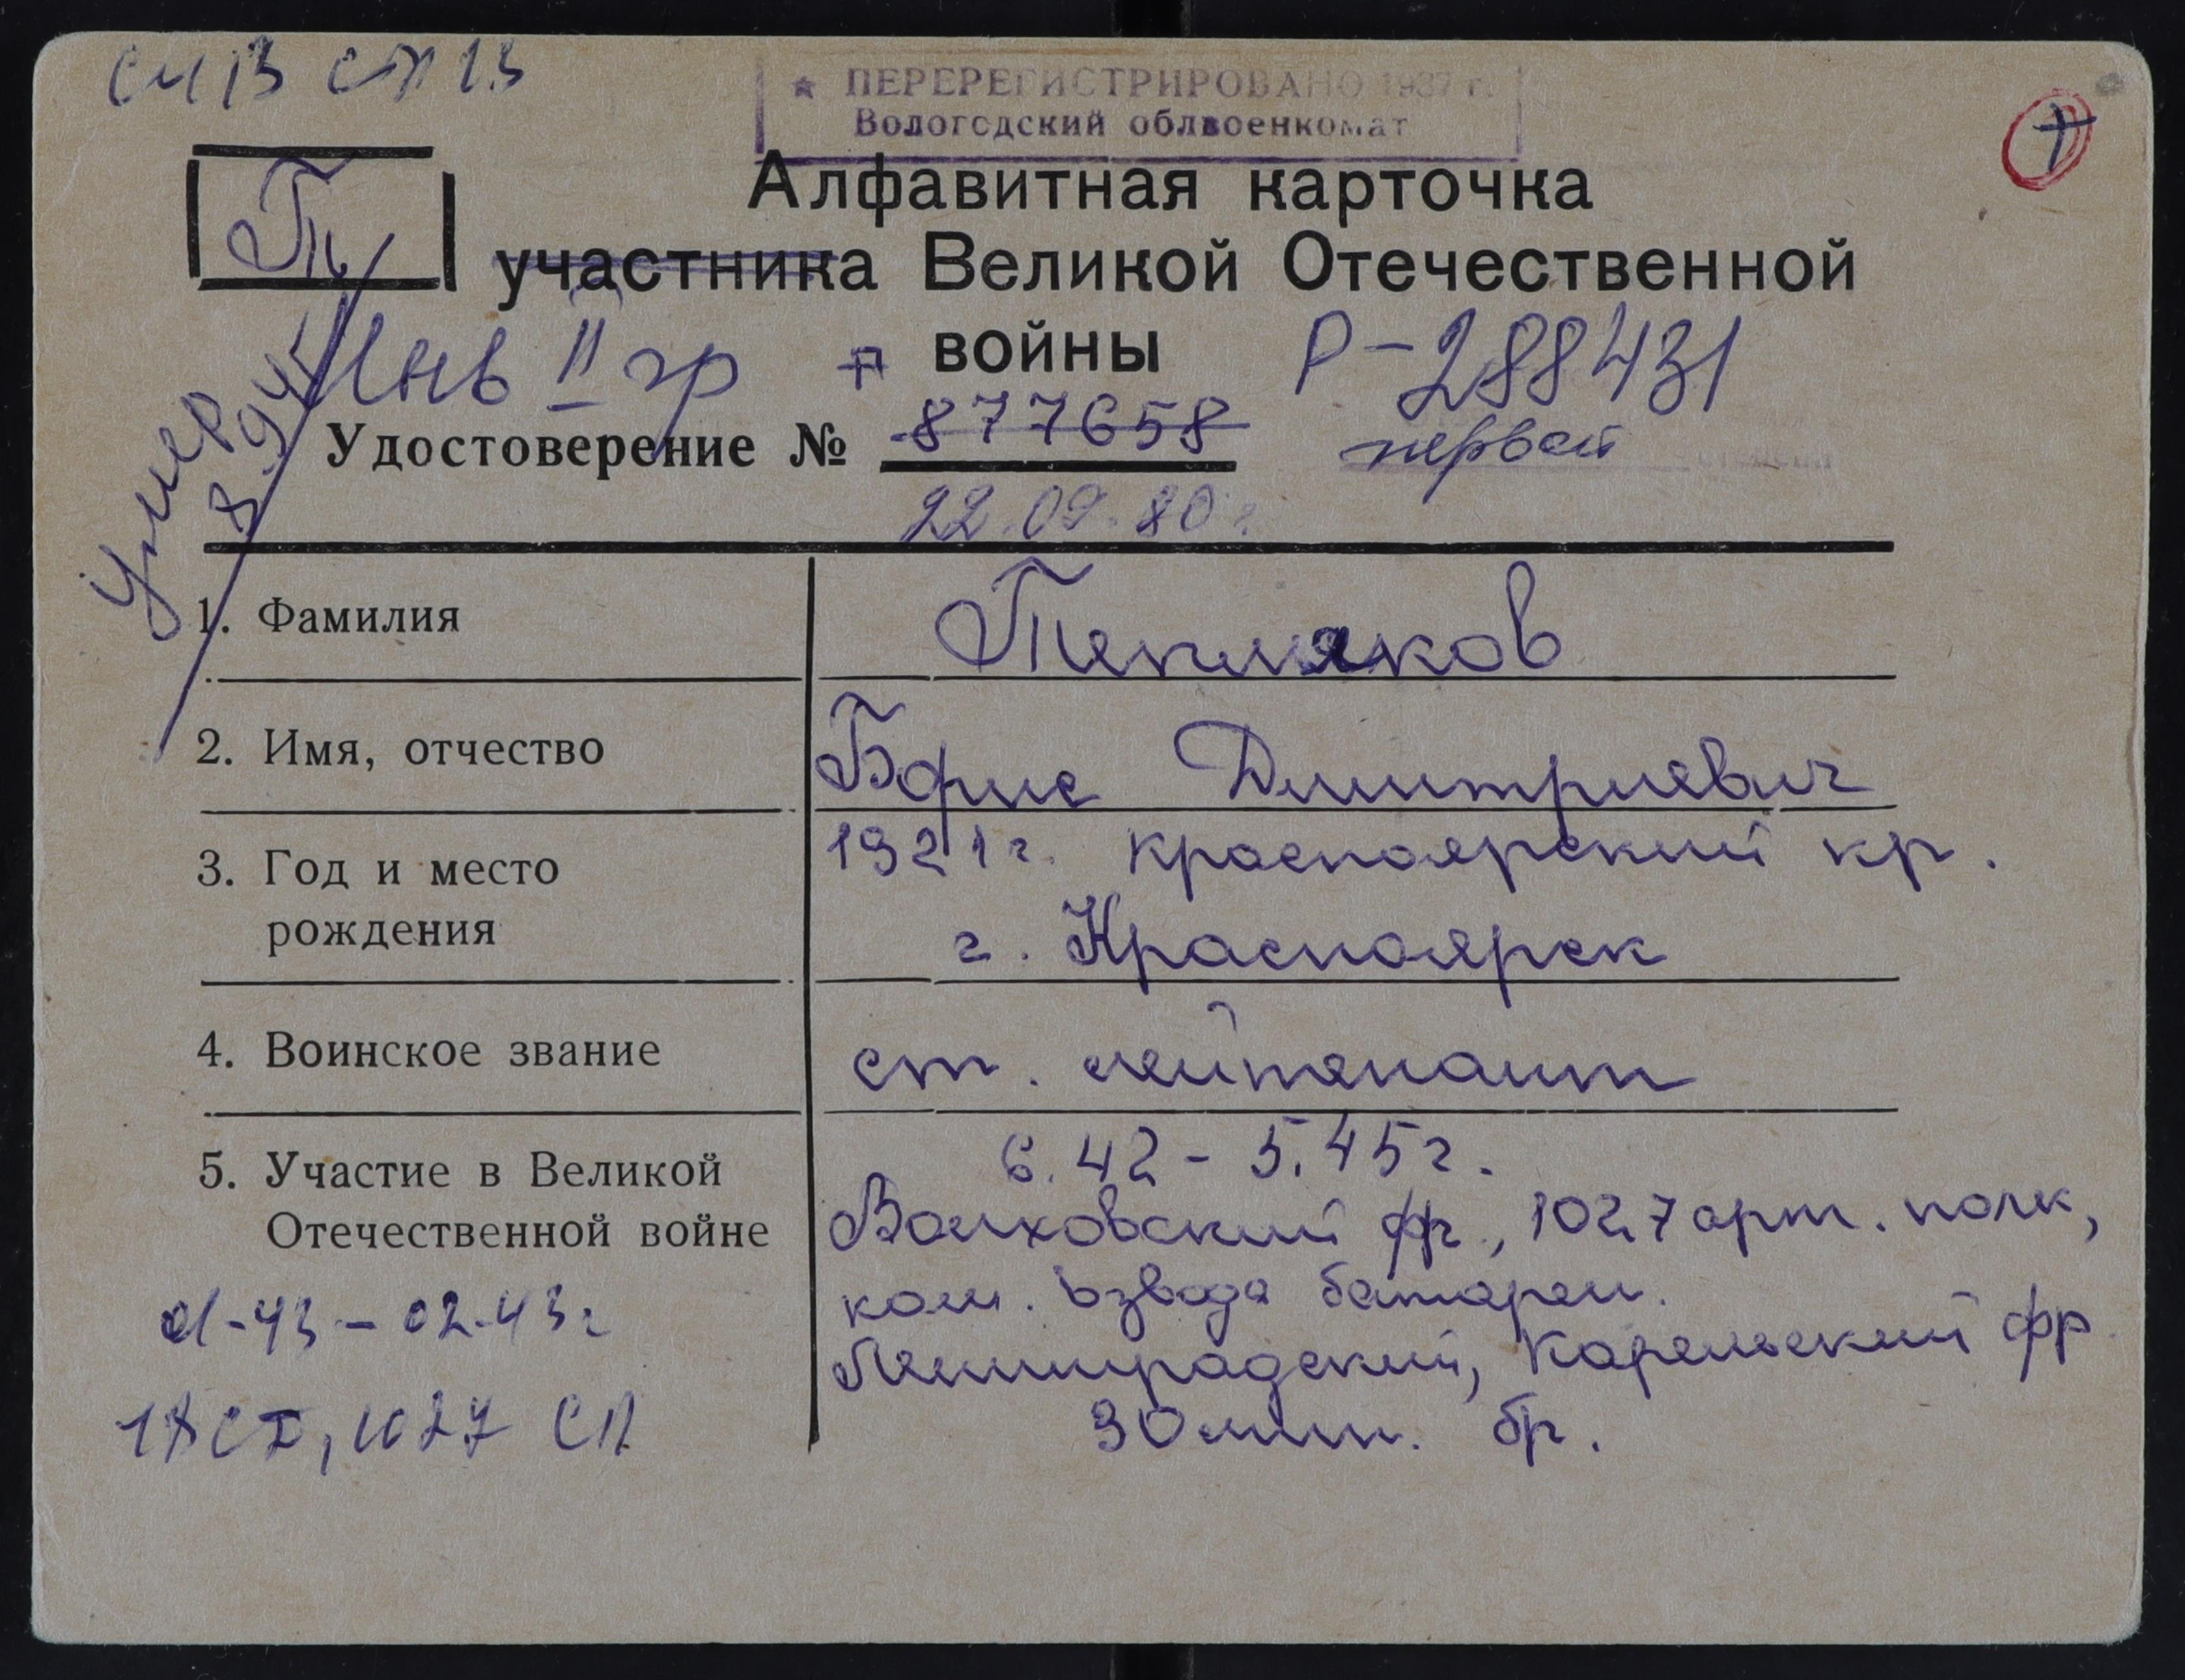 СМ 13 СТ 13
★ ПЕРЕРЕГИСТРИРОВАНО 1987 г.
Вологодский облвоенкомат
Т
Алфавитная карточка
участника Великой Отечественной
войны
Инв II гр
Р-288431
Удостоверение № 877658
первой
22.09.80 г.
Умер
8.94г
1. Фамилия
Тепляков
2. Имя, отчество
Борис Дмитриевич
3. Год и место
рождения
1921 г. Красноярский кр.
г. Красноярск
4. Воинское звание
ст. лейтенант
5. Участие в Великой
Отечественной войне
6.42 - 5.45 г.
Волховский фр., 1027 арт. полк,
ком. взвода батареи.
Ленинградский, Карельский фр
30 мин. бр.
01-43 - 02.43 г
1027 СП